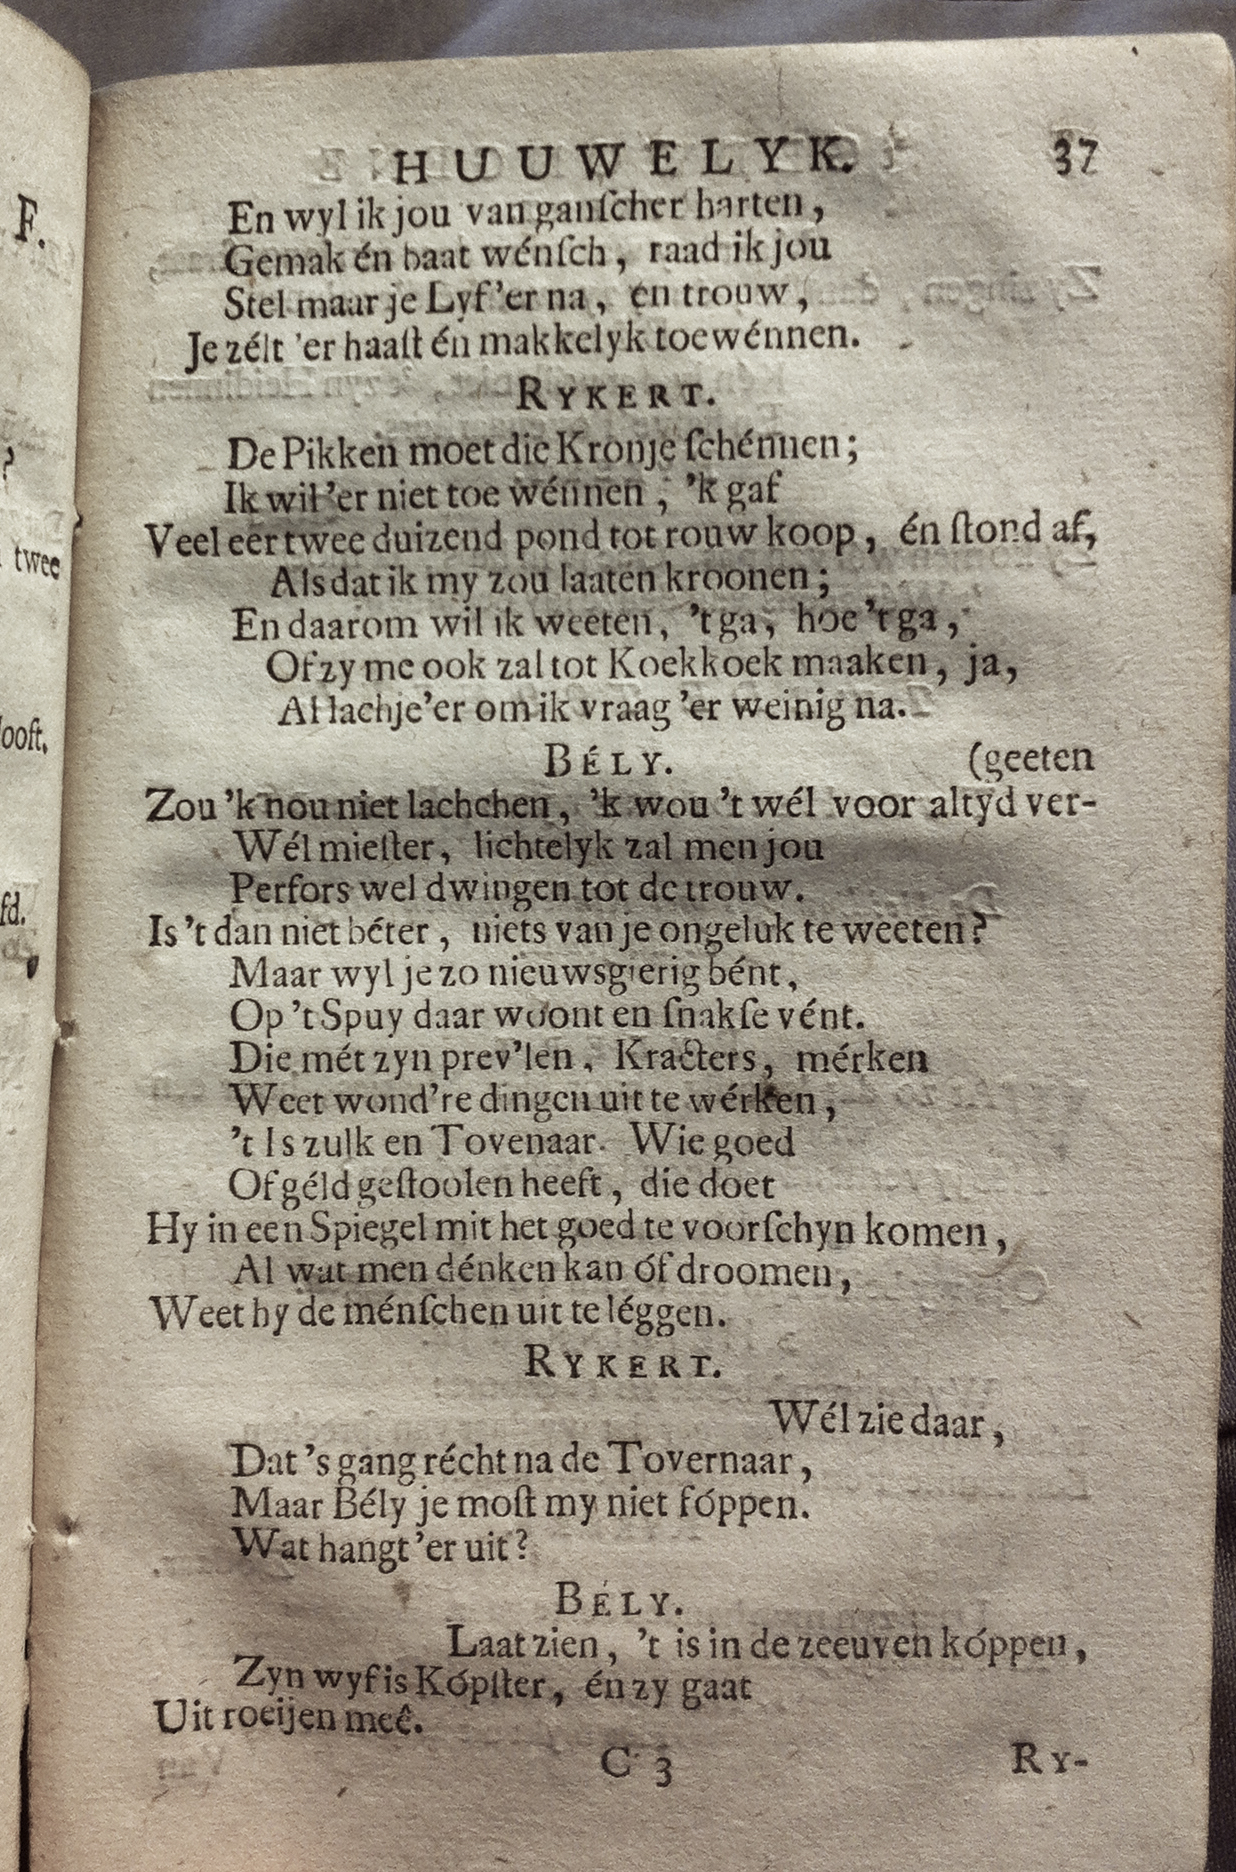 HUUWELYK. 37
En wyl ik jou van ganſcher harten,
Gemak én baat wénſch, raad ik jou
Stel maar je Lyf 'er na, en trouw,
Je zélt 'er haaſt én makkelyk toewénnen.
RYKERT.
De Pikken moet die Kronje ſchénnen;
Ik wil 'er niet toe wénnen, 'k gaf
Veel eer twee duizend pond tot rouw koop, én ſtond af,
Als dat ik my zou laaten kroonen;
En daarom wil ik weeten, 't ga, hoe 't ga,
Of zy me ook zal tot Koekkoek maaken, ja,
Al lach je 'er om ik vraag 'er weinig na.
BÉLY. (geeten
Zou 'k nou niet lachchen, 'k wou 't wél voor altyd ver-
Wél mieſter, lichtelyk zal men jou
Perfors wel dwingen tot de trouw.
Is 't dan niet béter, niets van je ongeluk te weeten?
Maar wyl je zo nieuwsgierig bént,
Op 't Spuy daar woont en ſnakſe vént.
Die mét zyn prev'len, Kracters, mérken
Weet wond're dingen uit te wérken,
't Is zulk en Tovenaar. Wie goed
Of géld geſtoolen heeft, die doet
Hy in een Spiegel mit het goed te voorſchyn komen,
Al wat men dénken kan óf droomen,
Weet hy de ménſchen uit te léggen.
RYKERT.
Wél zie daar,
Dat 's gang récht na de Tovernaar,
Maar Bély je moſt my niet fóppen.
Wat hangt 'er uit?
BÉLY.
Laat zien, 't is in de zeeuven kóppen,
Zyn wyf is Kópſter, én zy gaat
Uit roeijen meê.
C 3 RY-
F.
?
twee
looft.
fd.